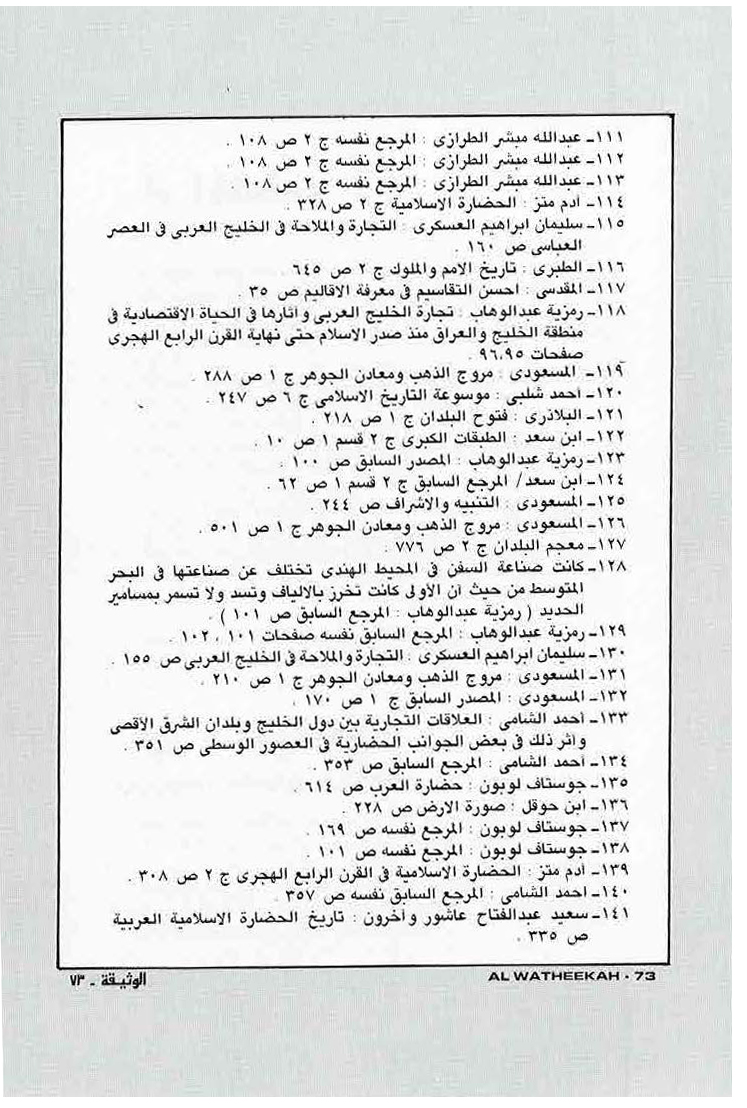 ١١١ـ عبدالله مبشر الطرازى : المرجع نفسه ج ٢ ص ١٠٨ .
١١٢ـ عبدالله مبشر الطرازى : المرجع نفسه ج ٢ ص ١٠٨ .
١١٣ـ عبدالله مبشر الطرازى : المرجع نفسه ج ٢ ص ١٠٨ .
١١٤ـ آدم متز : الحضارة الاسلامية ج ٢ ص ٣٢٨ .
١١٥ـ سليمان ابراهيم العسكرى : التجارة والملاحة فى الخليج العربى فى العصر
العباسى ص ١٦٠ .
١١٦ـ الطبرى : تاريخ الامم والملوك ج ٢ ص ٦٤٥ .
١١٧ـ المقدسى : احسن التقاسيم فى معرفة الاقاليم ص ٣٥ .
١١٨ـ رمزية عبدالوهاب : تجارة الخليج العربى وآثارها فى الحياة الاقتصادية فى
منطقة الخليج والعراق منذ صدر الاسلام حتى نهاية القرن الرابع الهجرى
صفحات ٩٦،٩٥ .
١١٩ـ المسعودى : مروج الذهب ومعادن الجوهر ج ١ ص ٢٨٨ .
١٢٠ـ أحمد شلبى : موسوعة التاريخ الاسلامى ج ٦ ص ٢٤٧ .
١٢١ـ البلاذرى : فتوح البلدان ج ١ ص ٢١٨ .
١٢٢ـ ابن سعد : الطبقات الكبرى ج ٢ قسم ١ ص ١٠ .
١٢٣ـ رمزية عبدالوهاب : المصدر السابق ص ١٠٠ .
١٢٤ـ ابن سعد/ المرجع السابق ج ٢ قسم ١ ص ٦٢ .
١٢٥ـ المسعودى : التنبيه والاشراف ص ٢٤٤ .
١٢٦ـ المسعودى : مروج الذهب ومعادن الجوهر ج ١ ص ٥٠١ .
١٢٧ـ معجم البلدان ج ٢ ص ٧٧٦ .
١٢٨ـ كانت صناعة السفن فى المحيط الهندى تختلف عن صناعتها فى البحر
المتوسط من حيث أن الأولى كانت تخرز بالالياف وتسد ولا تسمر بمسامير
الحديد ( رمزية عبدالوهاب : المرجع السابق ص ١٠١ ) .
١٢٩ـ رمزية عبدالوهاب : المرجع السابق نفسه صفحات ١٠١ ، ١٠٢ .
١٣٠ـ سليمان ابراهيم العسكرى : التجارة والملاحة فى الخليج العربى ص ١٥٥ .
١٣١ـ المسعودى : مروج الذهب ومعادن الجوهر ج ١ ص ٢١٠ .
١٣٢ـ المسعودى : المصدر السابق ج ١ ص ١٧٠ .
١٣٣ـ أحمد الشامى : العلاقات التجارية بين دول الخليج وبلدان الشرق الأقصى
وأثر ذلك فى بعض الجوانب الحضارية فى العصور الوسطى ص ٣٥١ .
١٣٤ـ أحمد الشامى : المرجع السابق ص ٣٥٣ .
١٣٥ـ جوستاف لوبون : حضارة العرب ص ٦١٤ .
١٣٦ـ ابن حوقل : صورة الارض ص ٢٢٨ .
١٣٧ـ جوستاف لوبون : المرجع نفسه ص ١٦٩ .
١٣٨ـ جوستاف لوبون : المرجع نفسه ص ١٠١ .
١٣٩ـ آدم متز : الحضارة الاسلامية فى القرن الرابع الهجرى ج ٢ ص ٣٠٨ .
١٤٠ـ احمد الشامى : المرجع السابق نفسه ص ٣٥٧ .
١٤١ـ سعيد عبدالفتاح عاشور وآخرون : تاريخ الحضارة الاسلامية العربية
ص ٣٣٥ .
الوثيقة ـ ٧٣
AL WATHEEKAH · 73